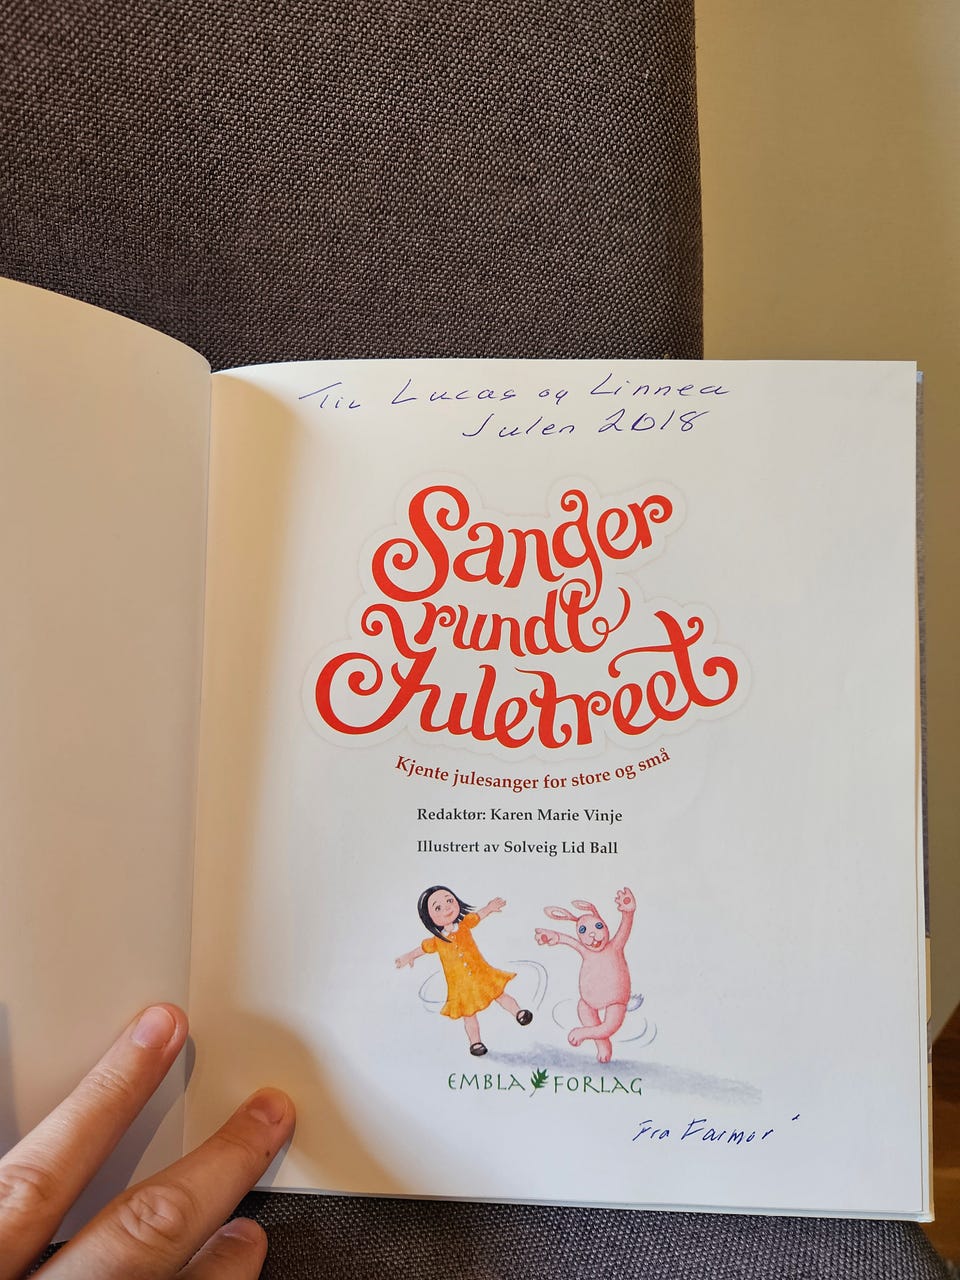 Til Lucas og Linnea
Julen 2018
Sanger
rundt
Juletreet
Kjente julesanger for store og små
Redaktør: Karen Marie Vinje
Illustrert av Solveig Lid Ball
EMBLA FORLAG
Fra Farmor